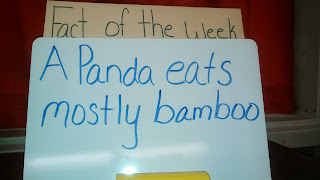 Fact of the Week
A Panda eats
mostly bamboo